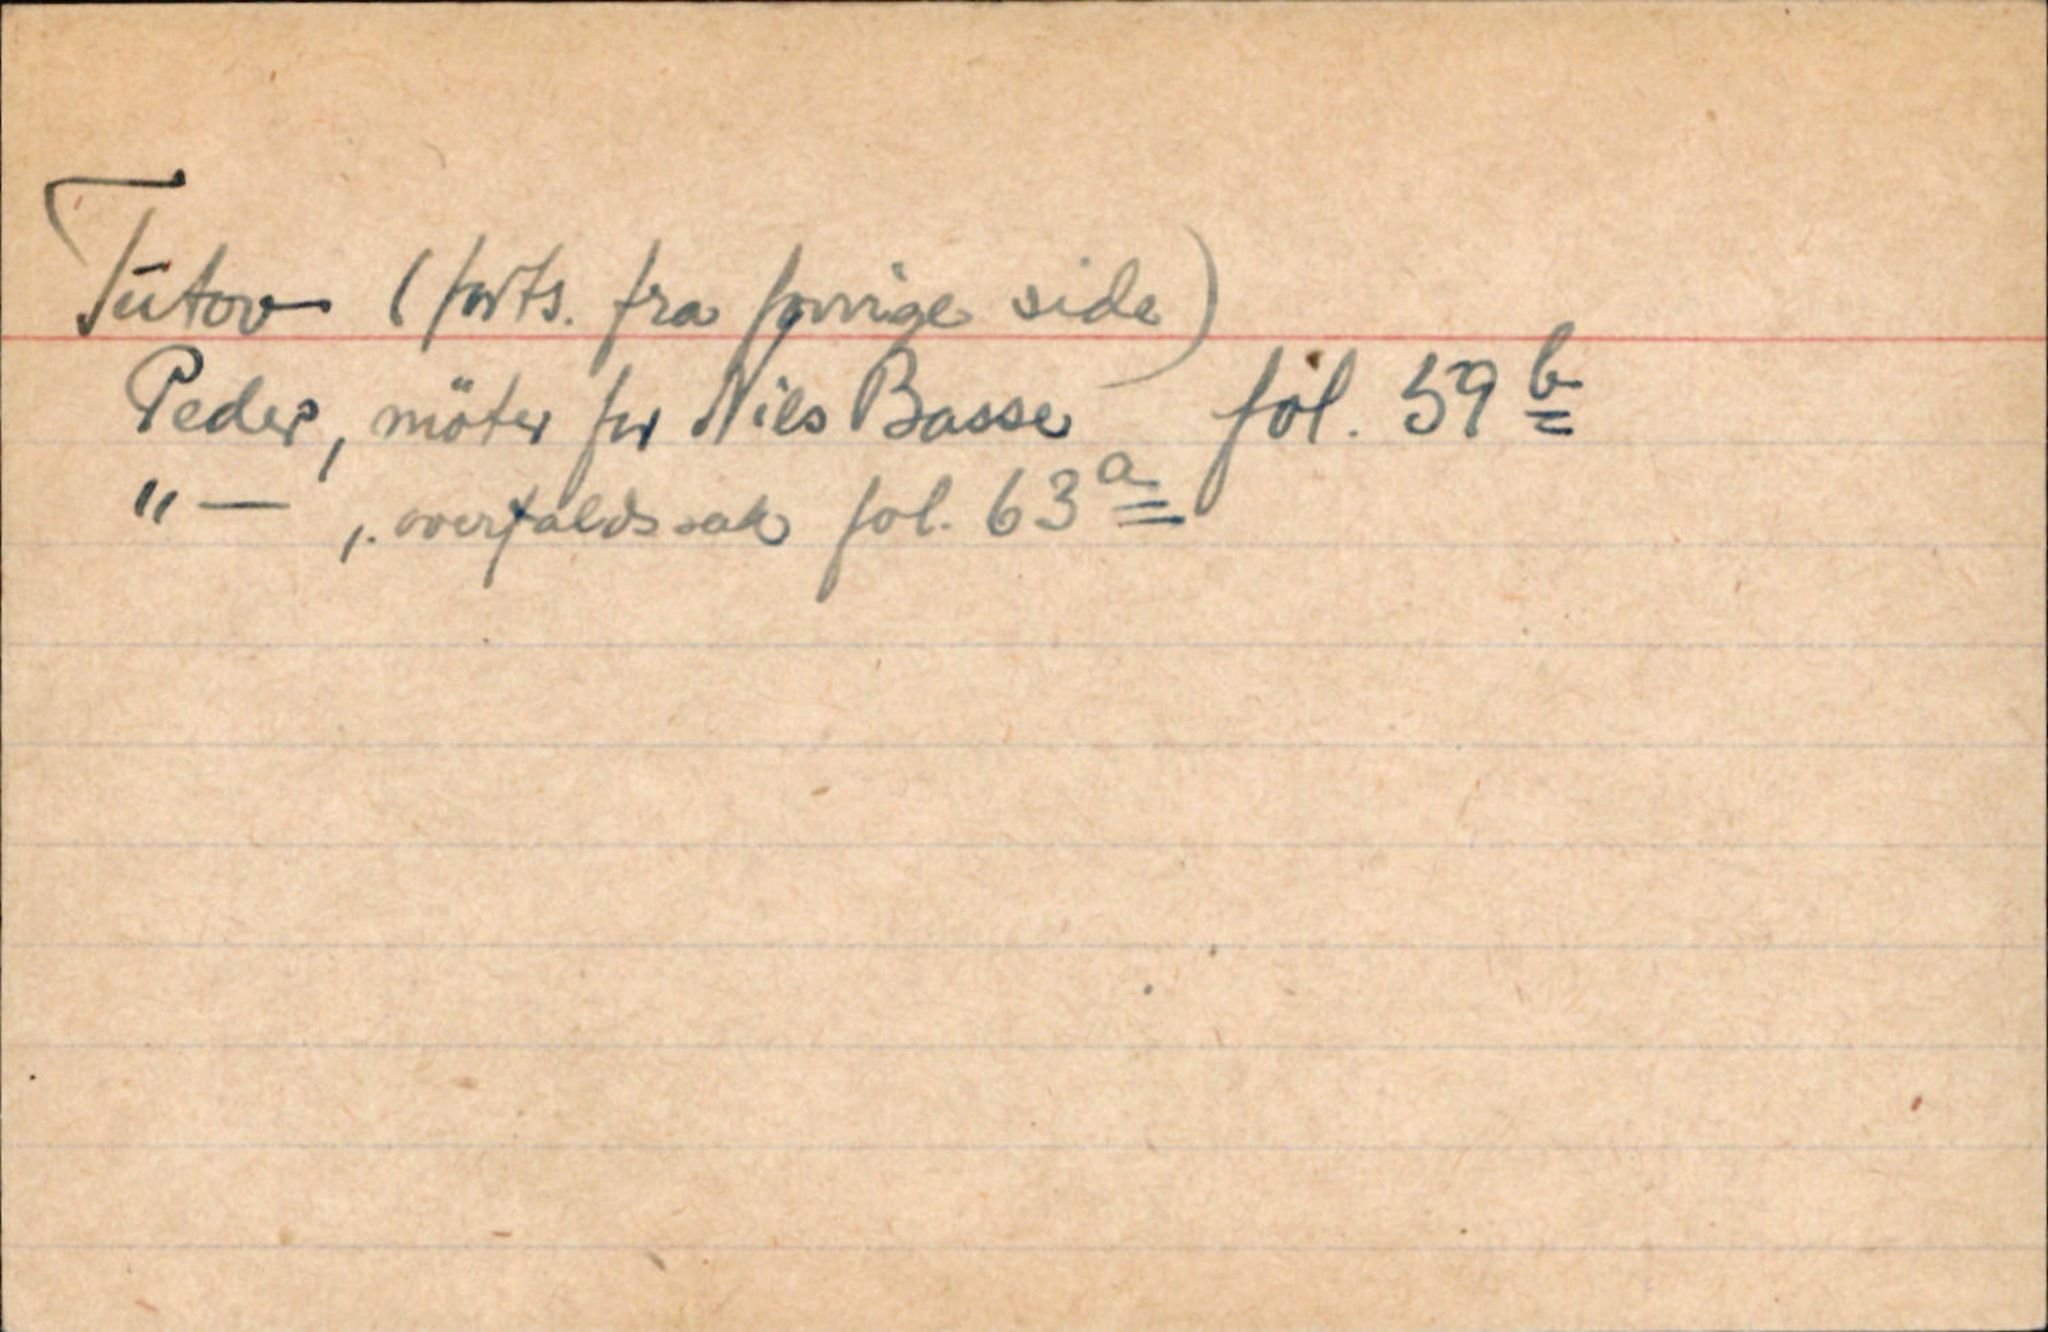 Tūtov (forts. fra forrige side)
Peder, möter for Nils Basse fol. 59 b
"— , overfaldssak fol. 63 a